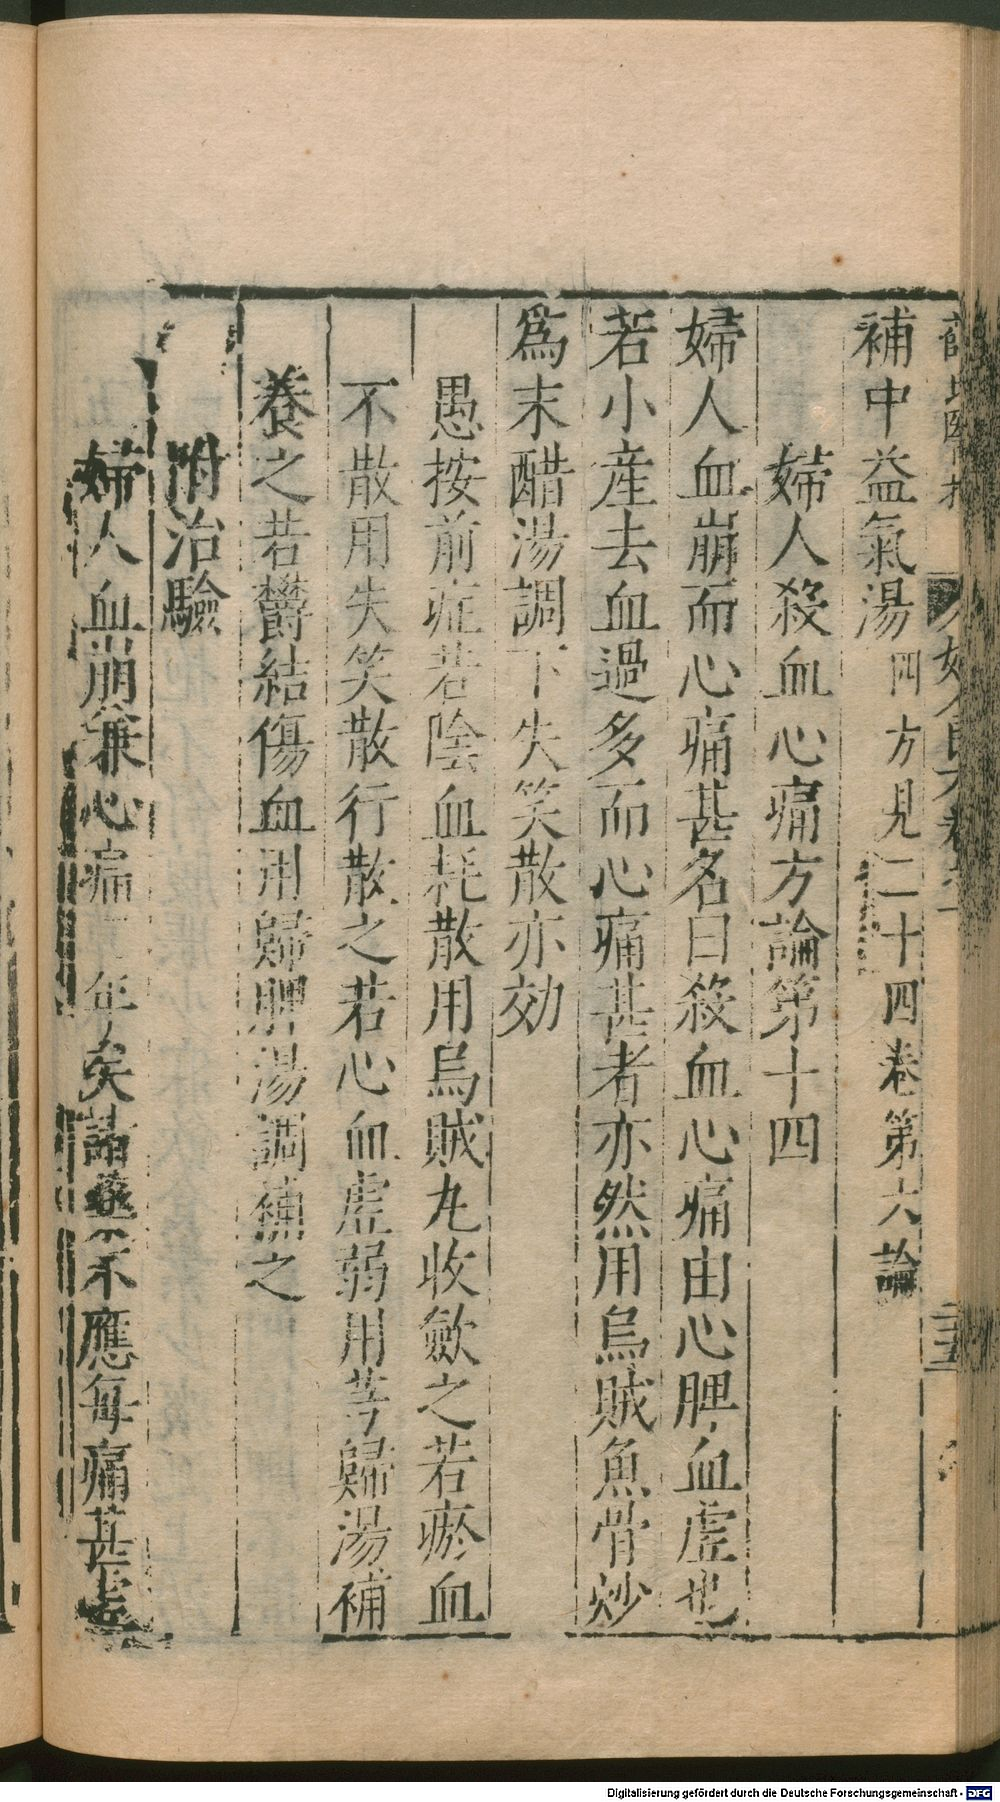 補中益氣湯四方見二十四卷第六論
婦人殺血心痛方論第十四
婦人血崩而心痛甚名曰殺血心痛由心脾血虛也
若小產去血過多而心痛甚者亦然用烏賊魚骨炒
爲末醋湯調下失笑散亦効
愚按前症若陰血耗散用烏賊丸收斂之若瘀血
不散用失笑散行散之若心血虛弱用芎歸湯補
養之若欝結傷血用歸脾湯調補之
附治驗
婦人血崩兼心痛年矣諸藥不應每痛甚虛
Digitalisierung gefördert durch die Deutsche Forschungsgemeinschaft - DFG